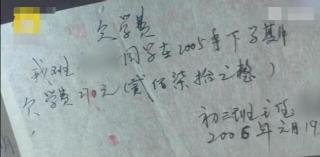 欠学费
我班 同学在2005年下学期
欠学费270元(贰佰柒拾元整)
初三班主任
2006年元月19